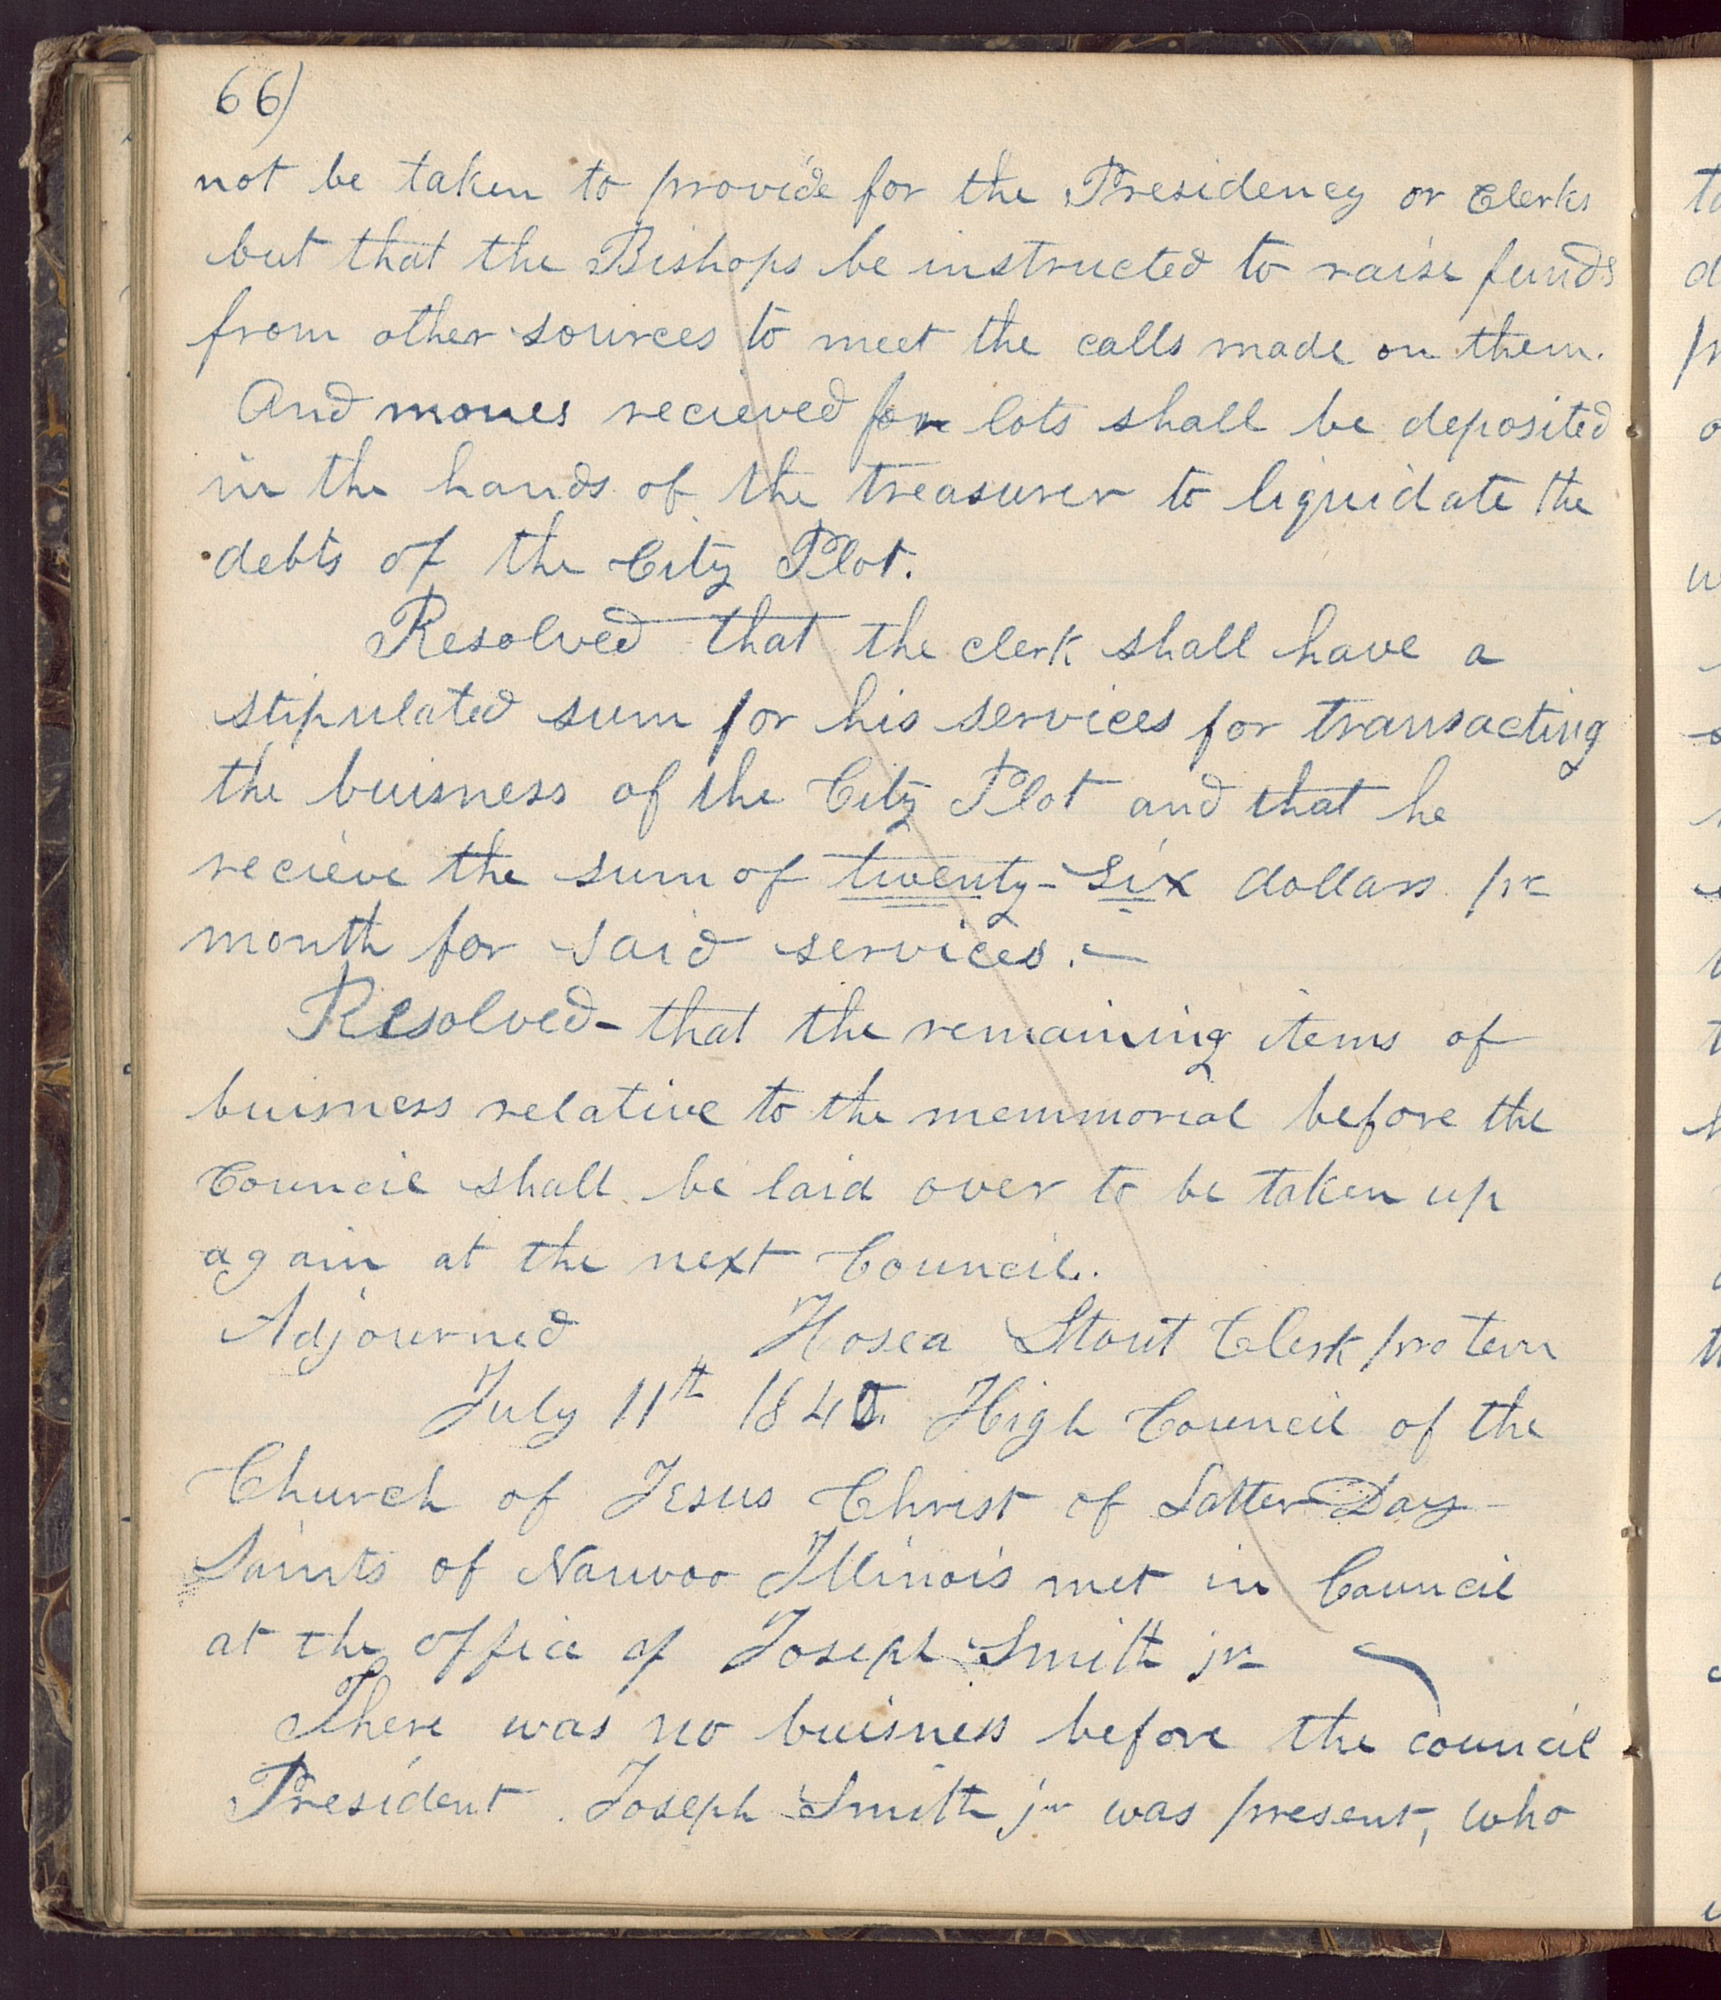 66)
not be taken to provide for the Presidency or Clerks
but that the Bishops be instructed to raise funds
from other sources to meet the calls made on them.
And mones recieved for lots shall be deposited
in the hands of the treasurer to liquidate the
debts of the City Plot.
Resolved that the clerk shall have a
stipulated sum for his services for transacting
the buisness of the City Plot and that he
recieve the sum of twenty-six dollars pr
month for said services.—
Resolved- that the remaining items of
buisness relative to the memmorial before the
Council shall be laid over to be taken up
again at the next Council.
Adjourned Hosea Stout Clerk pro tem
July 11th 1840. High Council of the
Church of Jesus Christ of Latter Day
Saints of Nauvoo Illinois met in Council
at the office of Joseph Smith jr
There was no buisness before the council
President Joseph Smith jr was present, who